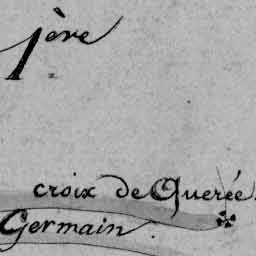 1ère
croix de Querée
Germain